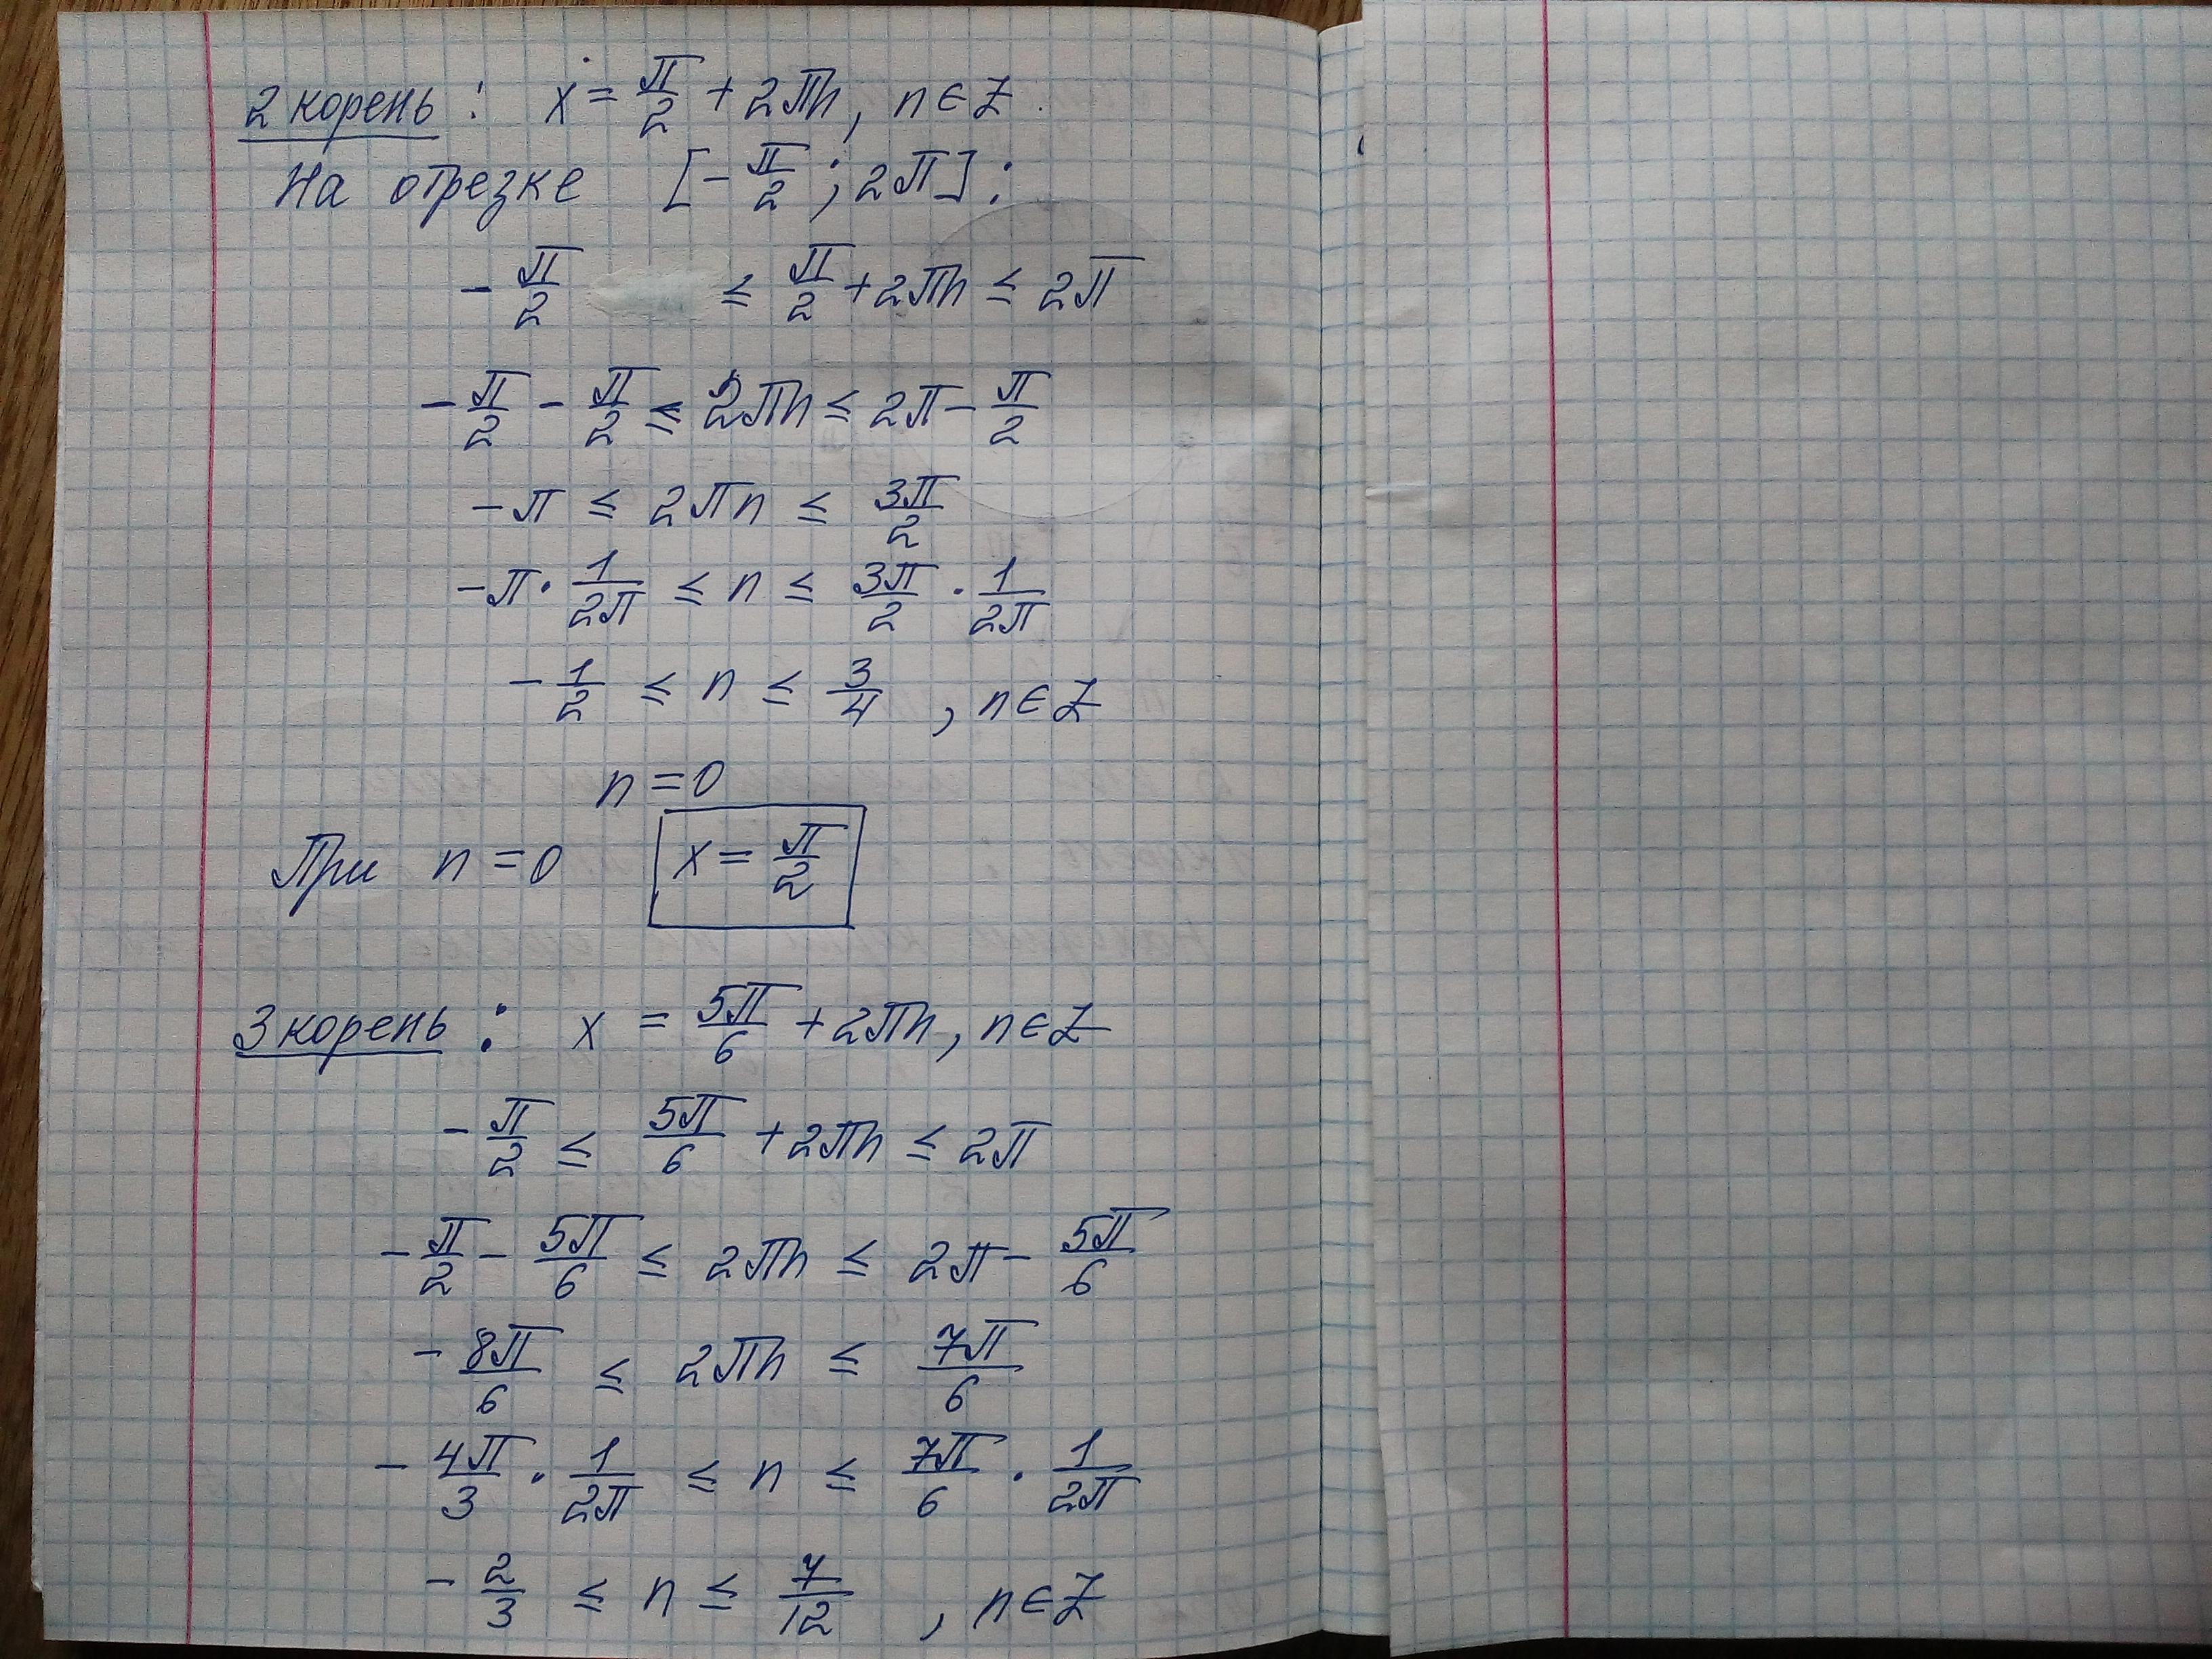 2 корень: x = π/2 + 2πn, n ∈ Z.
На отрезке [-π/2; 2π]:
-π/2 ≤ π/2 + 2πn ≤ 2π
-π/2 - π/2 ≤ 2πn ≤ 2π - π/2
-π ≤ 2πn ≤ 3π/2
-π · 1/2π ≤ n ≤ 3π/2 · 1/2π
-1/2 ≤ n ≤ 3/4, n ∈ Z
n = 0
При n = 0 x = π/2
3 корень: x = 5π/6 + 2πn, n ∈ Z
-π/2 ≤ 5π/6 + 2πn ≤ 2π
-π/2 - 5π/6 ≤ 2πn ≤ 2π - 5π/6
-8π/6 ≤ 2πn ≤ 7π/6
-4π/3 · 1/2π ≤ n ≤ 7π/6 · 1/2π
-2/3 ≤ n ≤ 7/12, n ∈ Z